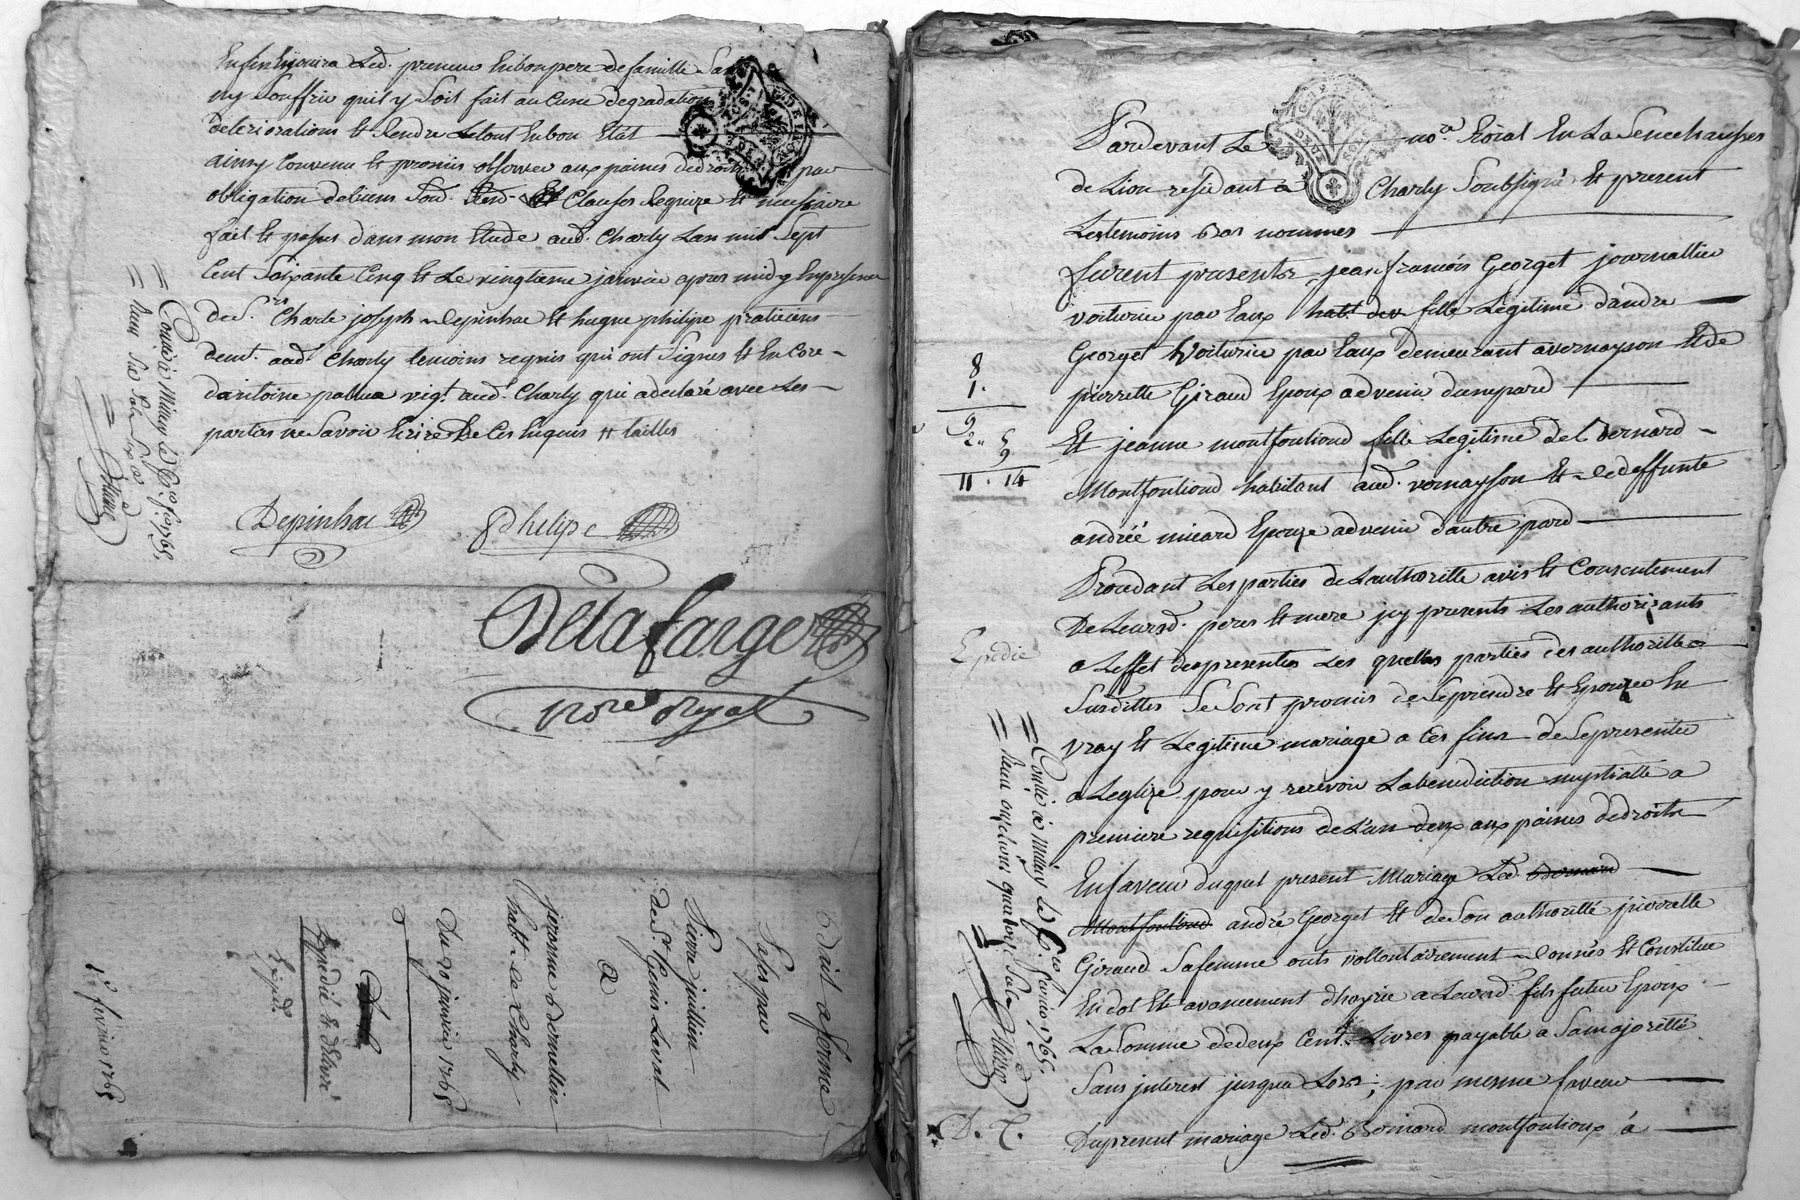 Enfin Jouira Led. preneur En bon pere de famille San
ny Souffrir quil y Soit fait aucune degradation
deteriorations Et Rendre Letout En bon Etat
ainsy Convenu Et promis observer aux paines de droits par
obligation de biens Soud. Rend. Et Clauses Requize Et necessaire
fait Et passé dans mon Etude aud. Charly Lan mil Sept
Cent Soixante Cinq Et Le vingtieme janvier apres midy En presence
de S.rs Charle joseph Depinhac Et hugue philipe praticiens
demt. aud. Charly temoins requis qui ont Signes Et Encore
dantoine pallua vig.t aud. Charly qui a declaré avec Les
parties ne Savoir Ecrire de Ces Enquis
Depinhac
Philipe
Delafarge
No.re Royal
Con.lé à Millery Le p.er fév. 1765
Bail a ferme
Passé par
Pierre juillien
de S.r Genis Laval
A
jerosme
hab.t de Charly
Du 20 janvier 1765
Expédié Et délivré
Expéd.
1.er fevrier 1765
Pardevant Le no.re Roïal En La Senechaussee
de Lion residant a Charly Soubsigné Et present
Les temoins Bas nommes
furent presents jean françois Georget journallier
voiturier par Eaux fils Légitime dandre
Georget Voiturier par Eaux demeurant a vernayson Et de
pierrette Giraud Epoux advenir dunepard
Et jeanne montfouilloud fille Legitime de Bernard
Montfoulloud habitant aud. vernayson Et de deffunte
andréé micard Epouze advenir dautre pard
Procedant Les parties de Lauthoritté avis Et Consentement
De Leursd. peres Et mere jcy presents Les authorizants
a Leffet des presentes Les quelles parties des authorittes
Susdittes Se Sont promis de Se prendre Et Epouzer En
vray Et Legitime mariage a Ces fins de Se presenter
a Leglize pour y recevoir La benediction nuptialle a
premiere requisitions de Lun deux aux paines de droits
En faveur duquel present Mariage Led. Bernard
Montfoulloud andré Georget Et de Son authoritté pierrette
Giraud Sa femme onts vollontairement donnés Et Constitue
En dot Et avancement dhoyrie a Leurd. fils futur Epoux
La Somme de deux Cent Livres payable a Sa majoritté
Sans jnterest jusqua Lors; par mesme faveur
Du present mariage Led. Bernard montfoulloux á
8
1.
9
2 " 5
9
11 . 14
Expedié
Con.lé à Millery Le p.er février 1765.
Reçu onze livres quatorze Sols
D. C.